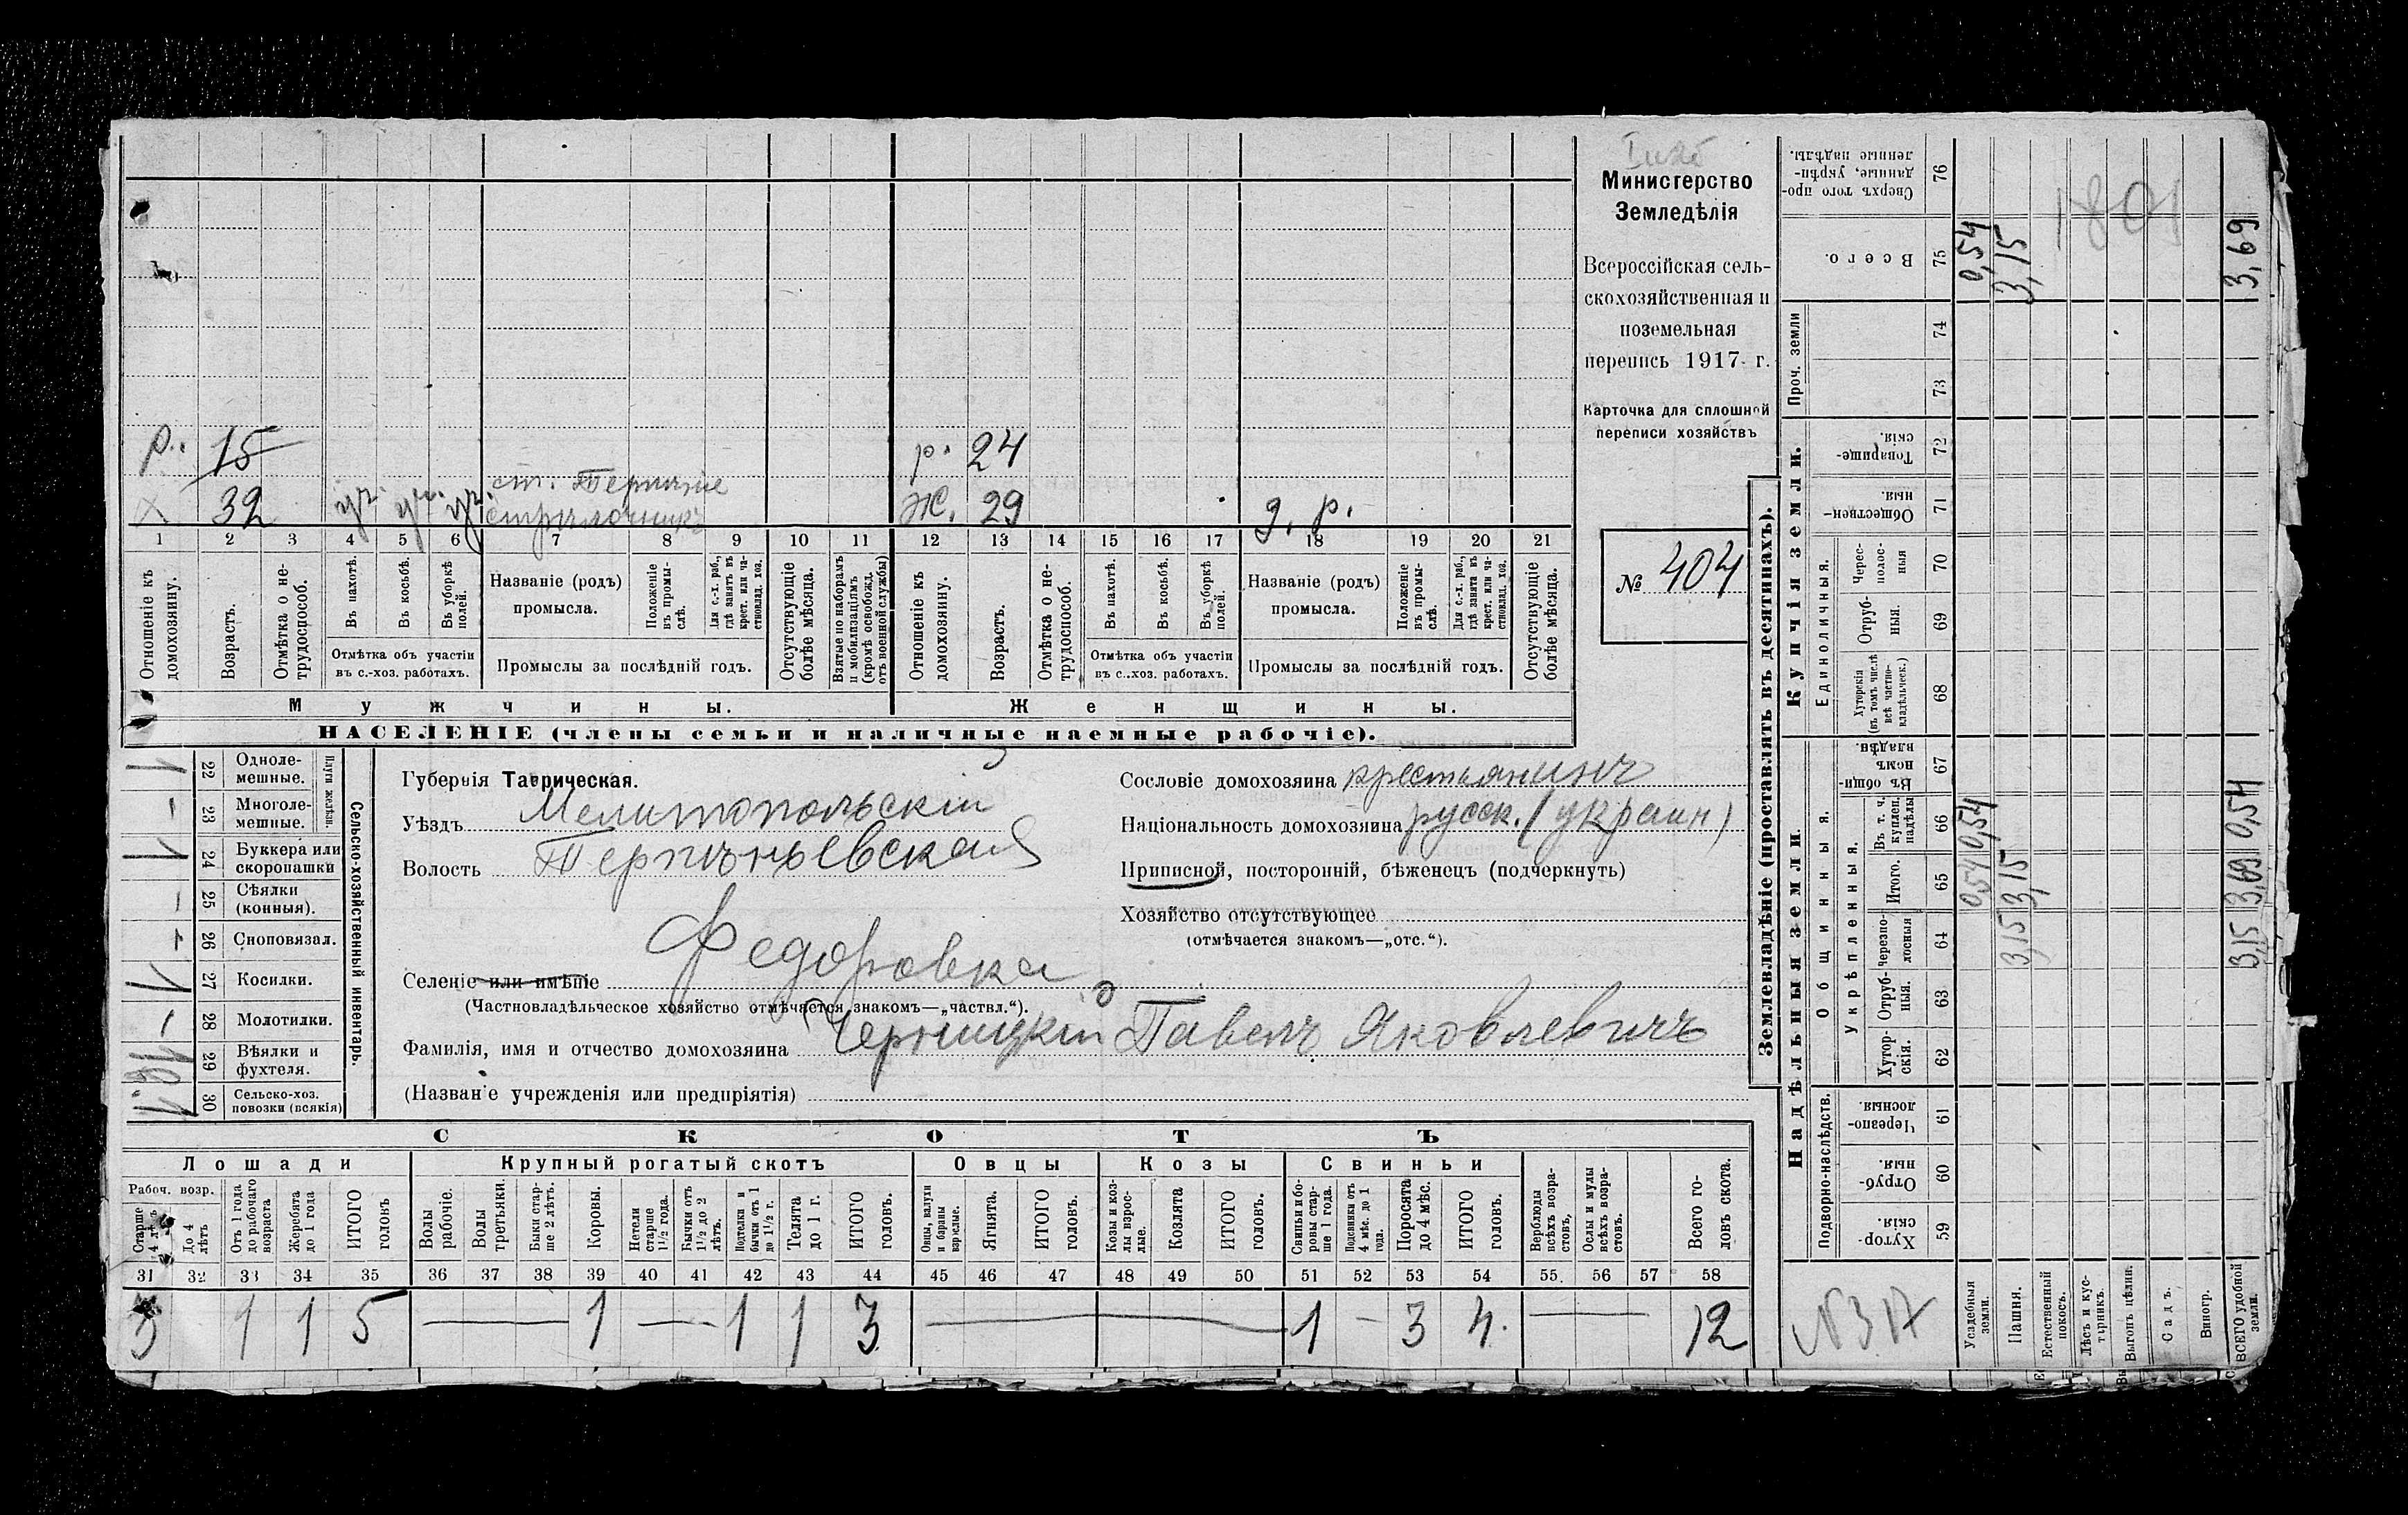 Министерство
Земледѣлія
Всероссійская сель-
скохозяйственная и
поземельная
перепись 1917 г.
Карточка для сплошной
переписи хозяйствъ
№ 404
р. 15
р. 24
х 32 уч. уч. уч. ст. Терпѣніе
стрѣлочникъ
Ж. 29 д. р.
1 2 3 4 5 6 7 8 9 10 11 12 13 14 15 16 17 18 19 20 21
Отношеніе къ домохозяину.
Возрастъ.
Отмѣтка о не-трудоспособ.
Въ пахотѣ.
Въ косьбѣ.
Въ уборкѣ полей.
Отмѣтка объ участіи
въ с.-хоз. работахъ.
Названіе (родъ)
промысла.
Положеніе въ промы-слѣ.
Для с.-х. раб., гдѣ занятъ въ крест. или ча-стновлад. хоз.
Промыслы за послѣдній годъ.
Отсутствующіе болѣе мѣсяца.
Взятые по наборамъ и мобилизаціямъ (кромѣ освобожд. отъ военной службы)
Отношеніе къ домохозяину.
Возрастъ.
Отмѣтка о не-трудоспособ.
Въ пахотѣ.
Въ косьбѣ.
Въ уборкѣ полей.
Отмѣтка объ участіи
въ с..хоз. работахъ.
Названіе (родъ)
промысла.
Положеніе въ промы-слѣ.
Для с.-х. раб., гдѣ занята въ крест. или ча-стновлад. хоз.
Промыслы за послѣдній годъ.
Отсутствующіе болѣе мѣсяца.
Мужчины. Женщины.
НАСЕЛЕНІЕ (члены семьи и наличные наемные рабочіе).
Сельско-хозяйственный инвентарь.
Плуги желѣзн.
22 Одноле-мешные.
23 Многоле-мешные.
24 Буккера или скоропашки
25 Сѣялки (конныя).
26 Сноповязал.
27 Косилки.
28 Молотилки.
29 Вѣялки и фухтеля.
30 Сельско-хоз. повозки (всякія)
Губернія Таврическая.
Уѣздъ Мелитопольскій
Волость Терпѣньевская
Селеніе или имѣніе Федоровка
(Частновладѣльческое хозяйство отмѣчается знакомъ—„частвл.“).
Фамилія, имя и отчество домохозяина Черницкій Павелъ Яковлевичъ
(Названіе учрежденія или предпріятія)
Сословіе домохозяина крестьянинъ
Національность домохозяина русск. (украин)
Приписной, посторонній, бѣженецъ (подчеркнуть)
Хозяйство отсутствующее
(отмѣчается знакомъ—„отс.“).
СКОТЪ
Лошади Крупный рогатый скотъ Овцы Козы Свиньи
Рабоч. возр.
Старше 4 лѣтъ
До 4 лѣтъ
Отъ 1 года до рабочаго возраста
Жеребята до 1 года
ИТОГО головъ
Волы рабочіе.
Волы третьяки.
Быки стар-ше 2 лѣтъ.
Коровы.
Нетели старше 1½ года.
Бычки отъ 1½ до 2 лѣтъ.
Подтелки и бычки отъ 1 до 1½ г.
Телята до 1 г.
ИТОГО головъ.
Овцы, валухи и бараны взрослые.
Ягнята.
ИТОГО головъ.
Козы и коз-лы взрос-лые.
Козлята
ИТОГО головъ.
Свиньи и бо-ровы стар-ше 1 года.
Подсвинки отъ 4 мѣс. до 1 года.
Поросята до 4 мѣс.
ИТОГО головъ.
Верблюды всѣхъ возра-стовъ.
Ослы и мулы всѣхъ возра-стовъ.
Всего го-ловъ скота.
31 32 33 34 35 36 37 38 39 40 41 42 43 44 45 46 47 48 49 50 51 52 53 54 55 56 57 58
3 1 1 5 — 1 — 1 1 3 — 1 – 3 4. — 12
Землевладѣніе (проставлять въ десятинахъ).
Надѣльныя земли. Купчія земли.
Подворно-наслѣдств.
Общинныя.
Укрѣпленныя.
Единоличныя.
Проч. земли
Хутор-скія. 59
Отруб-ныя. 60
Черезпо-лосныя. 61
Хутор-скія. 62
Отруб-ныя. 63
Черезпо-лосныя 64
Итого. 65
Въ т. ч. куплен. надѣлы 66
Въ общи-номъ владѣн. 67
Хуторскія (въ томъ числѣ всѣ частно-владѣльческ.) 68
Отруб-ныя. 69
Черес-полос-ныя 70
Обществен-ныя. 71
Товарище-скія. 72
73
74
Всего. 75
Сверхъ того про-данные, укрѣп-ленные надѣлы. 76
№317
Усадебныя земли. 0,54 0,54 0,54
Пашня. 3,15 3,15 3,15
Естественный покосъ.
Лѣсъ и кус-тарникъ.
Выгонъ цѣлин.
Садъ.
Виногр.
ВСЕГО удобной земли. 3,15 3,69 0,54 3,69